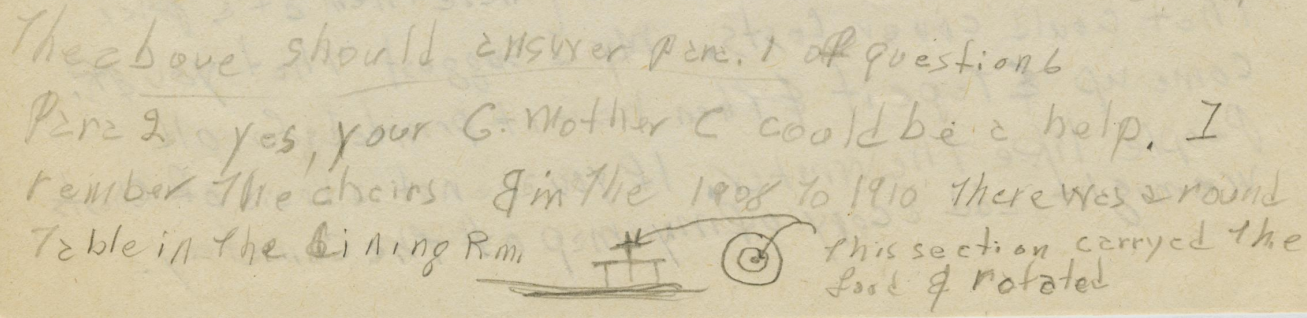 The above should answer Para. 1 of questions
Para 2 yes, your G. Mother C could be a help. I
rember The chairs & in The 1908 To 1910 There was a round
Table in The Dining Rm,
This section carryed The
food & rotated